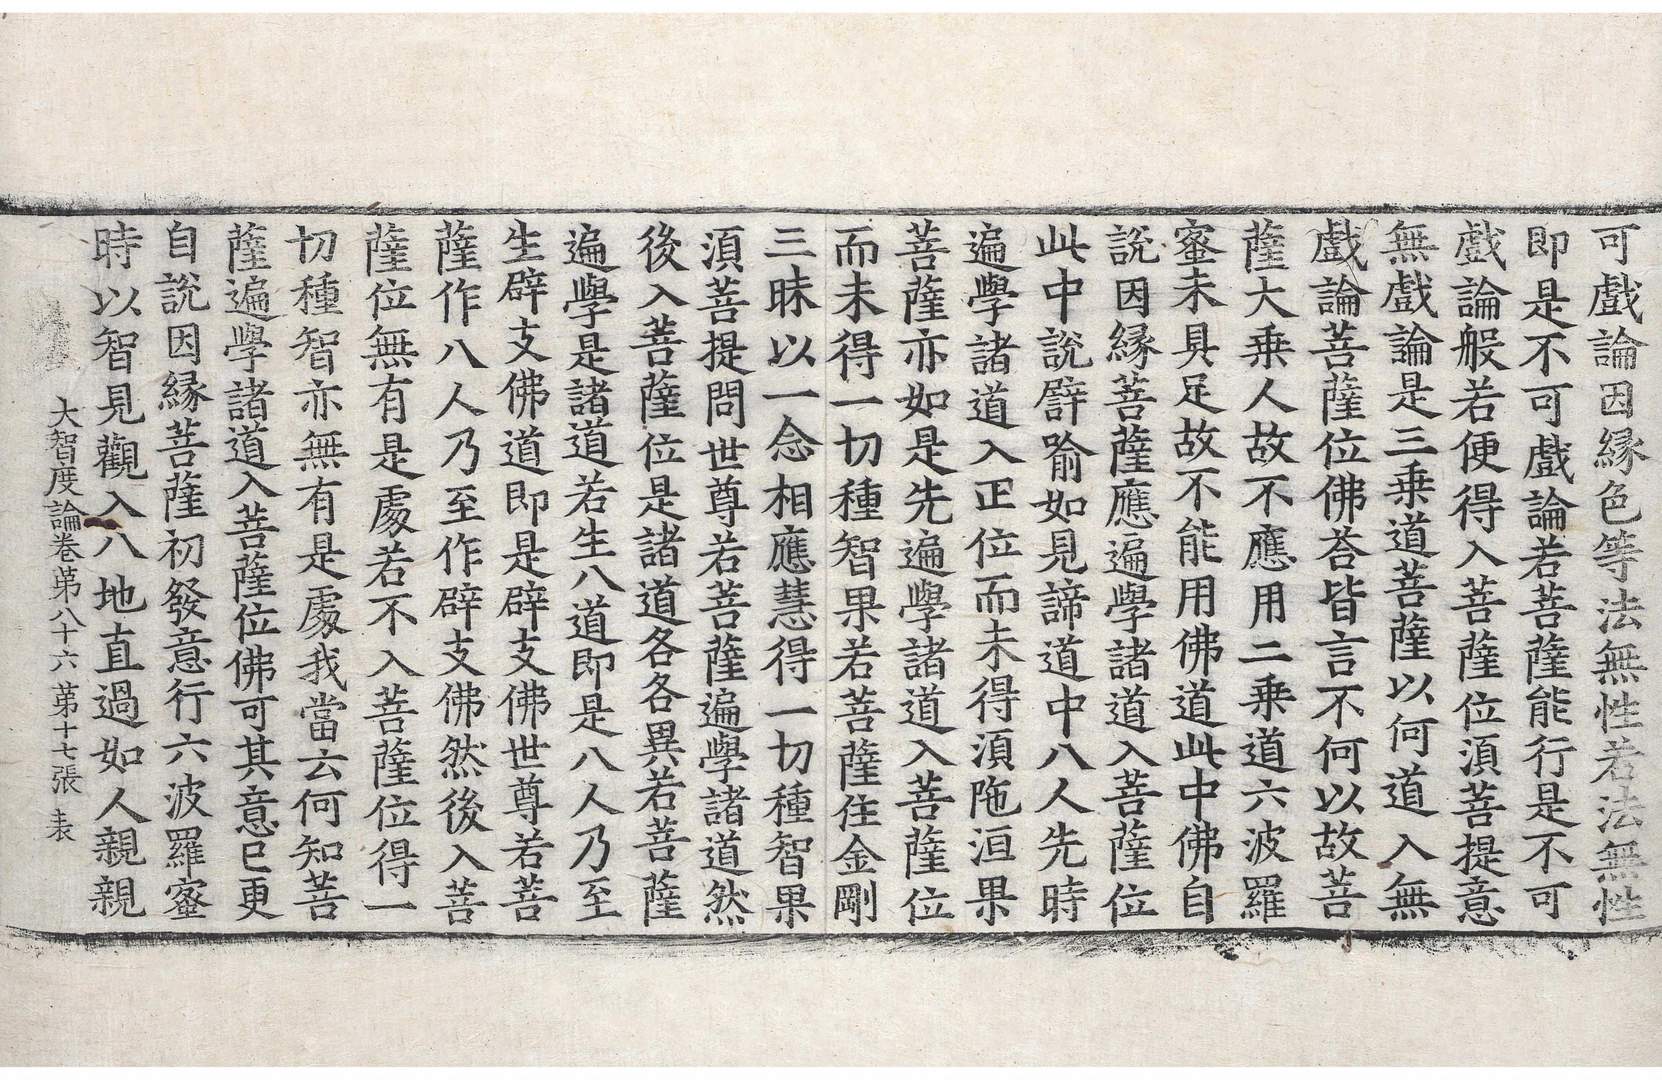 可戲論因緣色等法無性若法無性
即是不可戲論若菩薩能行是不可
戲論般若便得入菩薩位湏菩提意
無戲論是三乗道菩薩以何道入無
戲論菩薩位佛荅皆言不何以故菩
薩大乗人故不應用二乗道六波羅
蜜未具足故不能用佛道此中佛自
說因緣菩薩應遍學諸道入菩薩位
此中說譬喻如見諦道中八人先時
遍學諸道入正位而未得湏陁洹果
菩薩亦如是先遍學諸道入菩薩位
而未得一切種智果若菩薩住金剛
三昧以一念相應慧得一切種智果
湏菩提問世尊若菩薩遍學諸道然
後入菩薩位是諸道各各異若菩薩
遍學是諸道若生八道即是八人乃至
生辟支佛道即是辟支佛世尊若菩
薩作八人乃至作辟支佛然後入菩
薩位無有是處若不入菩薩位得一
切種智亦無有是處我當云何知菩
薩遍學諸道入菩薩位佛可其意已更
自說因緣菩薩初發意行六波羅蜜
時以智見觀入八地直過如人親親
大智度論卷第八十六 第十七張 表